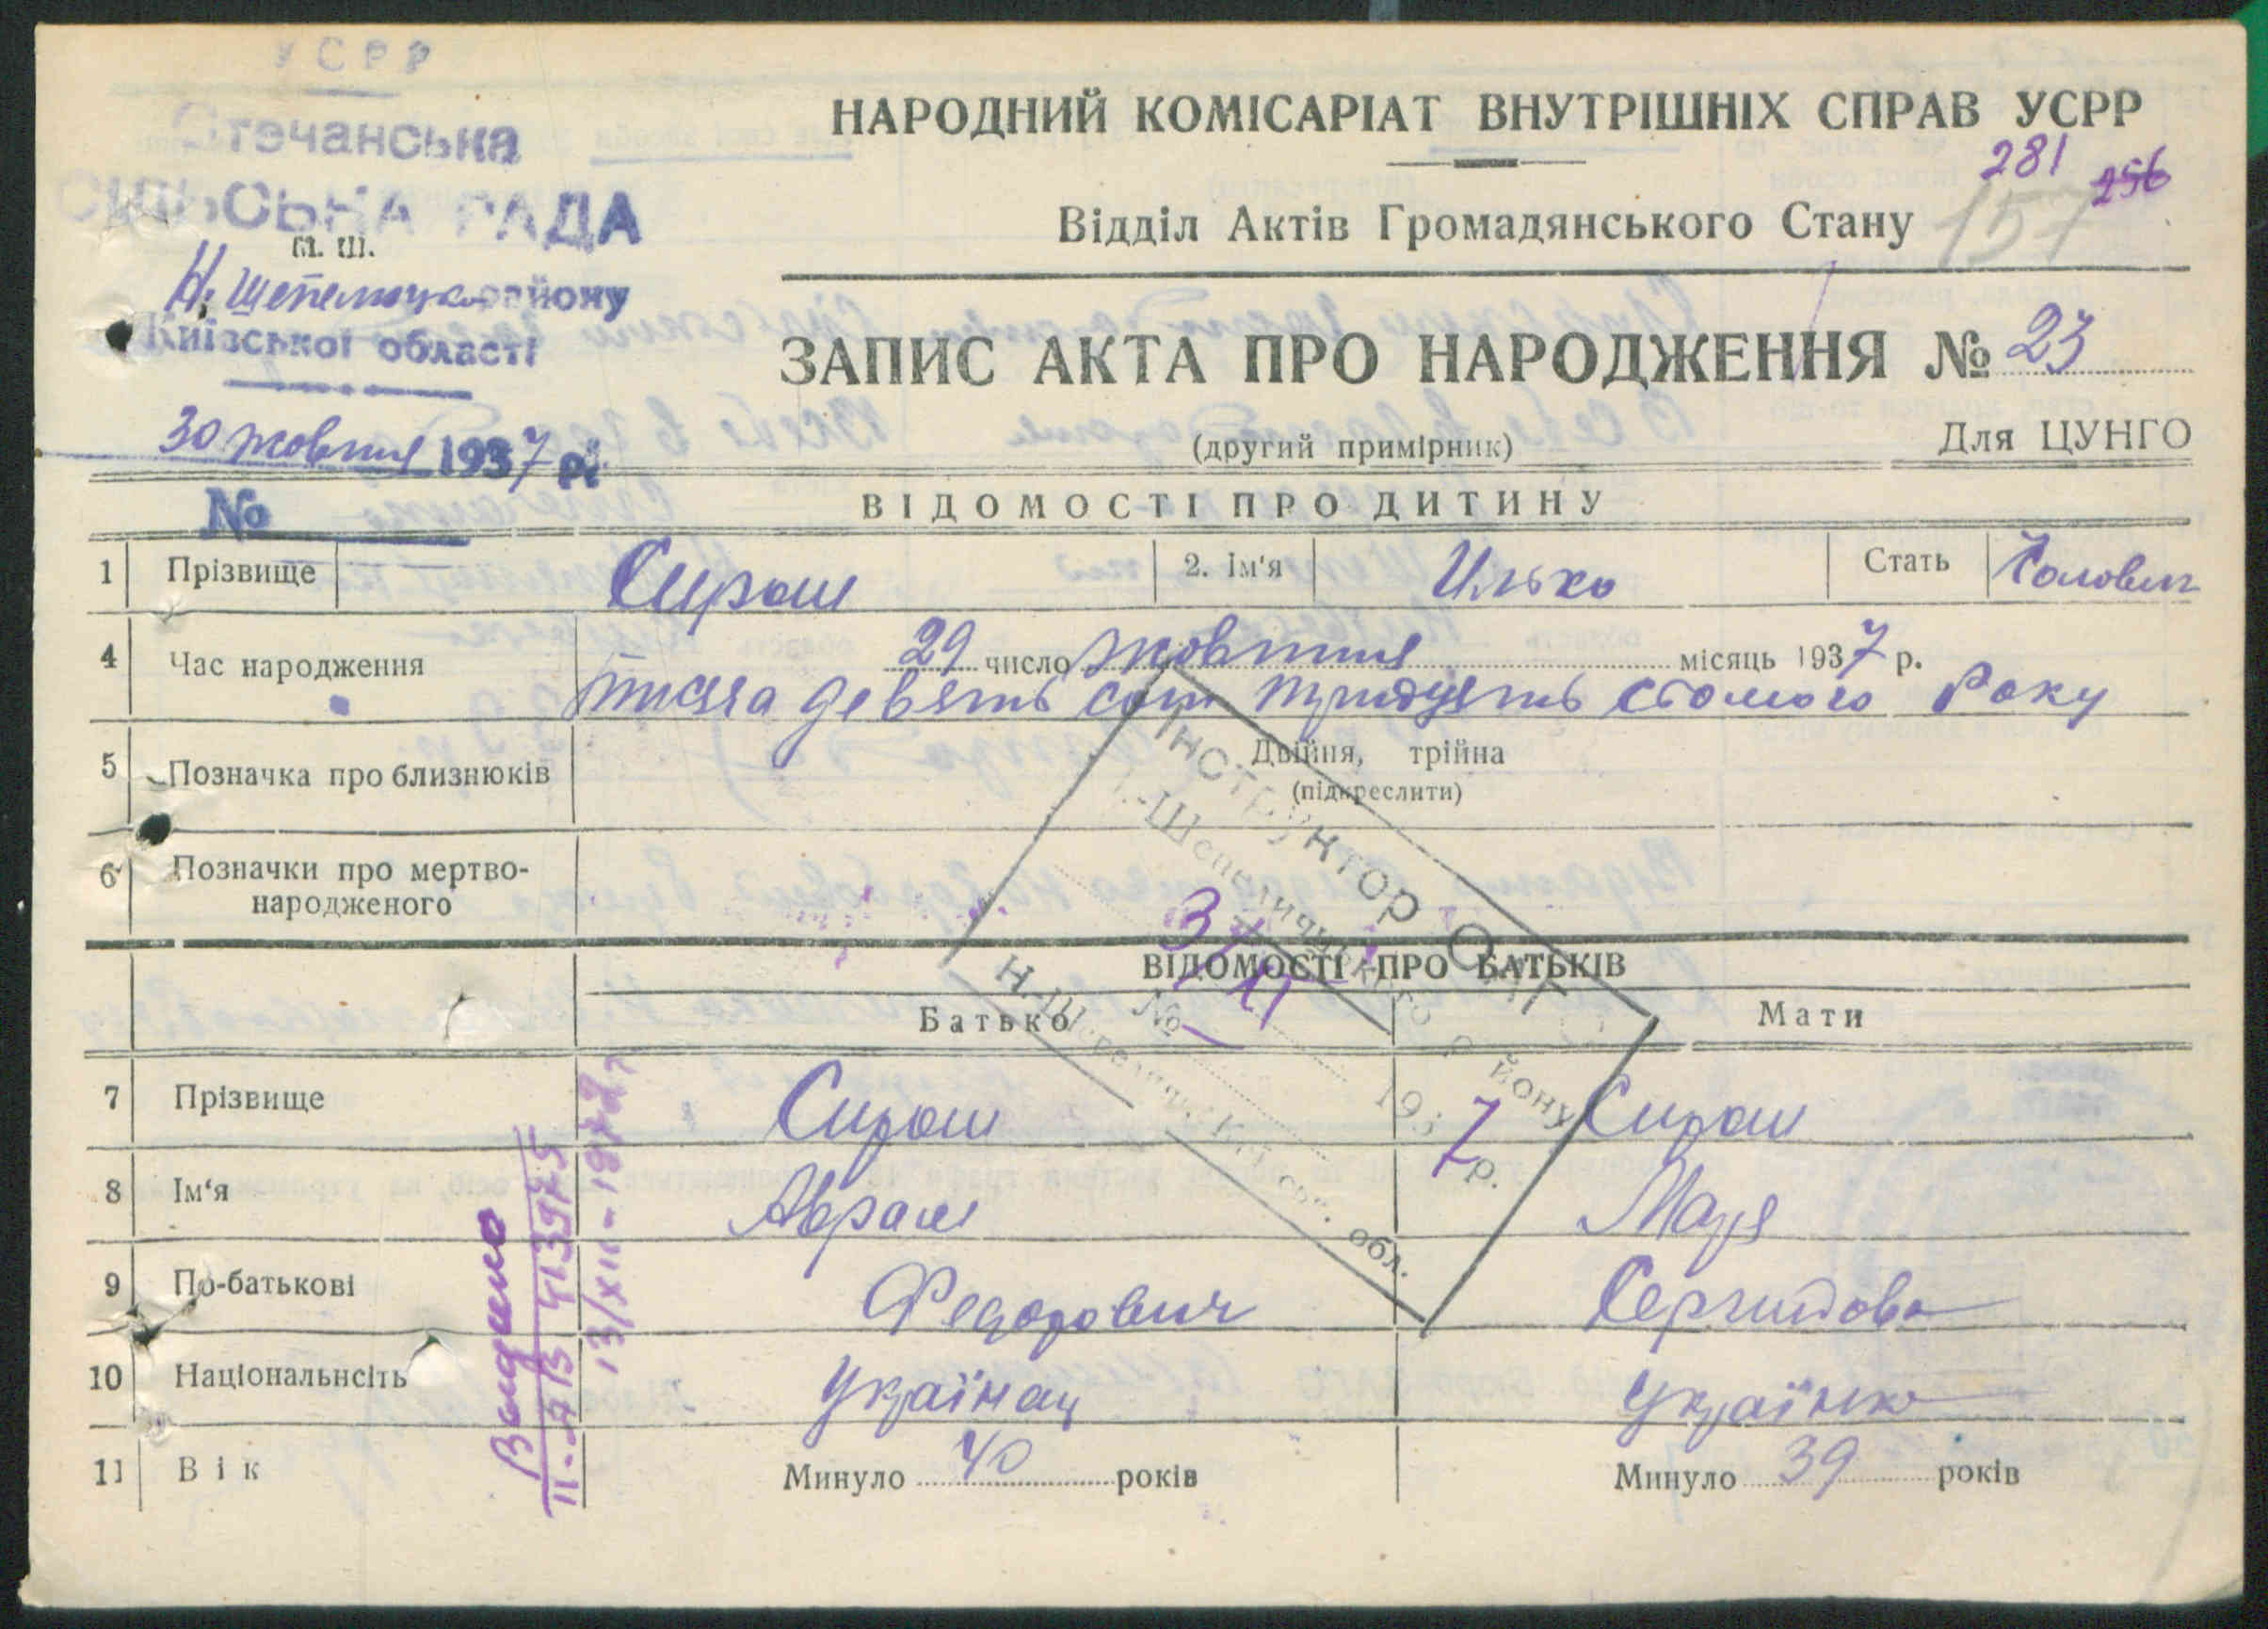 УСРР
Стечанська
СІЛЬСЬКА РАДА
М. Ш.
Н. Шепелицько району
Київської області
30 жовтня 1937 р.
№
НАРОДНИЙ КОМІСАРІАТ ВНУТРІШНІХ СПРАВ УСРР
281 256
157
Відділ Актів Громадянського Стану
ЗАПИС АКТА ПРО НАРОДЖЕННЯ № 23
(другий примірник)
Для ЦУНГО
ВІДОМОСТІ ПРО ДИТИНУ
1 Прізвище Сираш 2. Ім'я Илько Стать Чоловіч
4 Час народження 29 число жовтня місяць 1937 р.
тисяча девять сот тридцять сьомого Року
5 Позначка про близнюків Двійня, трійна
(підкреслити)
6 Позначки про мертво-
народженого
Інструктор ЗАГС
Н.-Шепелицького району
№ 3/XI 1937 р.
Н.-Шепеличі Київськ. обл.
ВІДОМОСТІ ПРО БАТЬКІВ
Батько Мати
7 Прізвище Сираш Сираш
8 Ім‘я Аврам Маря
9 По-батькові Федорович Сергиідова
10 Національнсіть Українац Українка
11 Вік Минуло 40 років Минуло 39 років
Видано
II-АПВ 4139
13/XII-1972 г